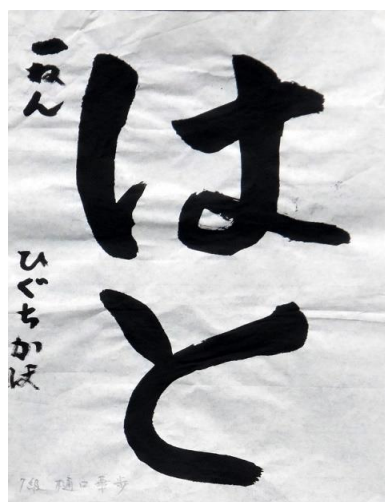 はと
一ねん
ひぐちかほ
7組 樋口